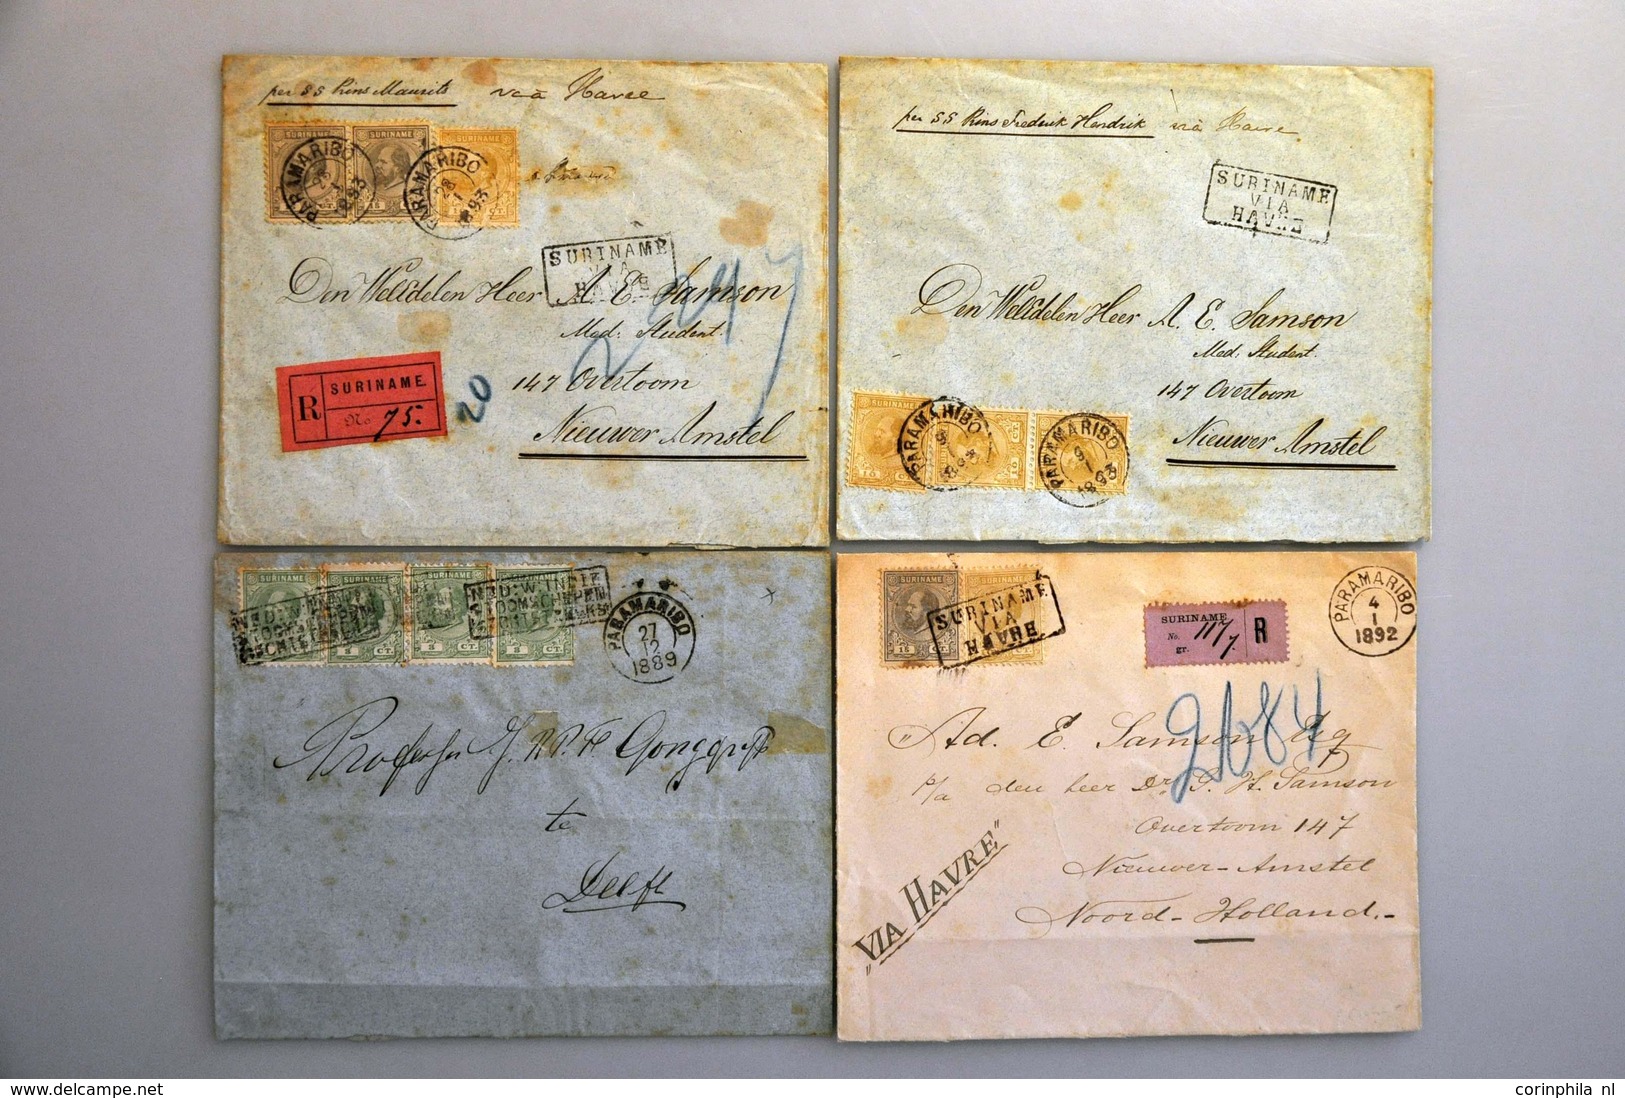 per SS Prins Maurits via Havre
SURINAME SURINAME SURINAME
PARAMARIBO
28
1
1893
PARAMARIBO
28
1
1893
SURINAME
VIA
HAVRE
Den WelEdelen Heer A. E. Samson
Med. Student
147 Overtoom
Nieuwer Amstel
R SURINAME.
No 75.
20
247
per SS Prins Frederik Hendrik via Havre
SURINAME
VIA
HAVRE
Den WelEdelen Heer A. E. Samson
Med. Student.
147 Overtoom
Nieuwer Amstel
SURINAME
PARAMARIBO
9
1
1893
PARAMARIBO
9
1
1893
SURINAME SURINAME SURINAME SURINAME
NED: W: INDIE
STOOMSCHEPEN
RECHTSTREEKS
PARAMARIBO
27
12
1889
Professor J. N. P. F. Gonggrijp
te
Delft
SURINAME
SURINAME
VIA
HAVRE
SURINAME
No. 117
gr. 7. R
PARAMARIBO
4
1
1892
2684
Ad. E. Samson Esq
p/a den heer Dr G. H. Samson
Overtoom 147
Nieuwer-Amstel
Noord-Holland.-
"VIA HAVRE"
corinphila nl